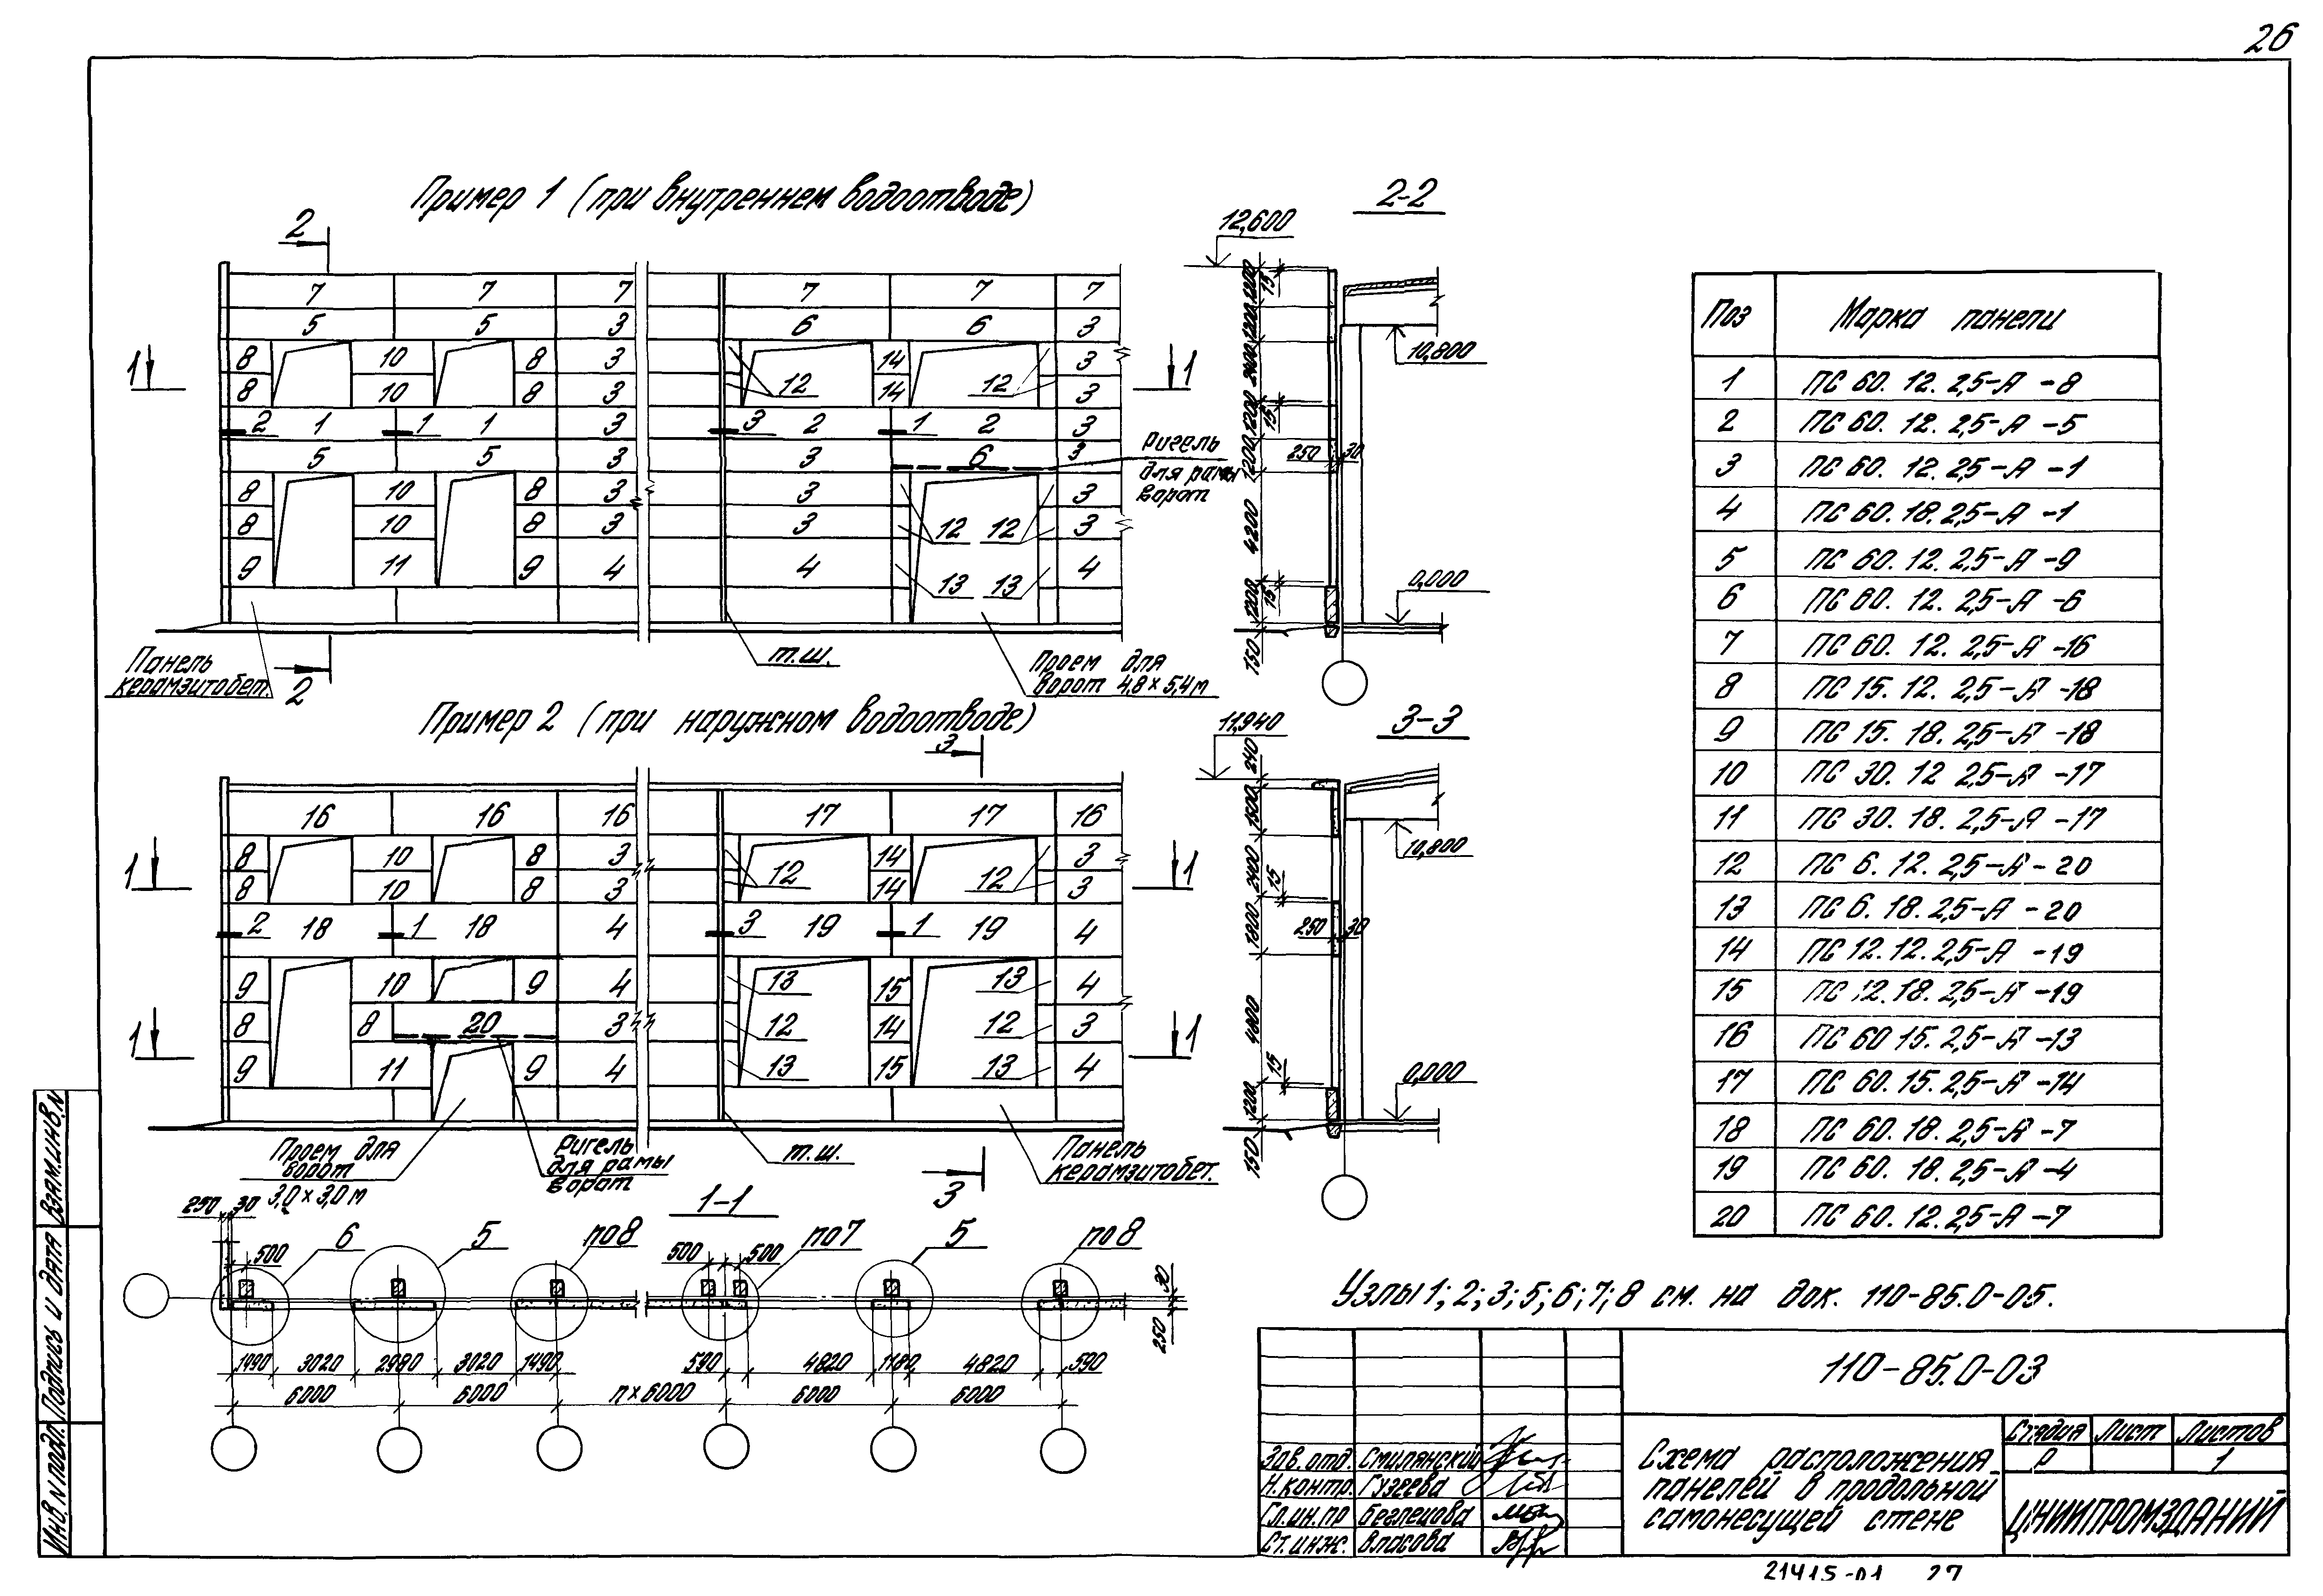 26
Пример 1 (при внутреннем водоотводе)
2
7 7 7 7 7 7
5 5 3 6 6 3
8 10 8 3 14 3
8 10 8 3 12 14 12 3
1 1
2 1 1 1 3 3 2 1 2 3
5 5 3 3 6 3
Ригель
для рамы
ворот
8 10 8 3 3 3
8 10 8 3 3 12 12 3
9 11 9 4 4 13 13 4
Панель
керамзитобет.
2
т.ш.
Проем для
ворот 4,8 × 5,4 м
2-2
12,600
1200
15
1200
2400
1200
15
1200
250 30
4200
15
1200
150
10,800
0,000
Пример 2 (при наружном водоотводе)
3
16 16 16 17 17 16
8 10 8 3 14 3
8 10 8 3 12 14 12 3
1 1
2 18 1 18 4 3 19 1 19 4
9 10 9 4 13 15 13 4
8 8 20 3 12 14 12 3
1 1
9 11 9 4 13 15 13 4
Проем для
ворот
3,0 × 3,0 м
Ригель
для рамы
ворот
т.ш.
3
Панель
керамзитобет.
3-3
11,940
240
1500
2400
15
1800
250 30
4800
15
1200
150
10,800
0,000
1-1
250 30
500
6 5 по 8 500 500 по 7 5 по 8
30
250
1490 3020 2980 3020 1490 590 4820 1180 4820 590
6000 6000 п × 6000 6000 6000
Поз Марка панели
1 ПС 60. 12. 2,5-А -8
2 ПС 60. 12. 2,5-А -5
3 ПС 60. 12. 2,5-А -1
4 ПС 60. 18. 2,5-А -1
5 ПС 60. 12. 2,5-А -9
6 ПС 60. 12. 2,5-А -6
7 ПС 60. 12. 2,5-А -16
8 ПС 15. 12. 2,5-А -18
9 ПС 15. 18. 2,5-А -18
10 ПС 30. 12 2,5-А -17
11 ПС 30. 18. 2,5-А -17
12 ПС 6. 12. 2,5-А - 20
13 ПС 6. 18. 2,5-А - 20
14 ПС 12. 12. 2,5-А -19
15 ПС 12. 18. 2,5-А -19
16 ПС 60 15. 2,5-А -13
17 ПС 60. 15. 2,5-А -14
18 ПС 60. 18. 2,5-А -7
19 ПС 60. 18. 2,5-А -4
20 ПС 60. 12. 2,5-А -7
Узлы 1; 2; 3; 5; 6; 7; 8 см. на док. 110-85.0-05.
110-85.0-03
Зав. отд. Смилянский
Н. контр. Гузеева
Гл. ин. пр Беглецова
Ст. инж. Власова
Схема расположения
панелей в продольной
самонесущей стене
Стадия Лист Листов
Р 1
ЦНИИПРОМЗДАНИЙ
Инв. N подл. Подпись и дата Взам. инв. N
21415-01 27